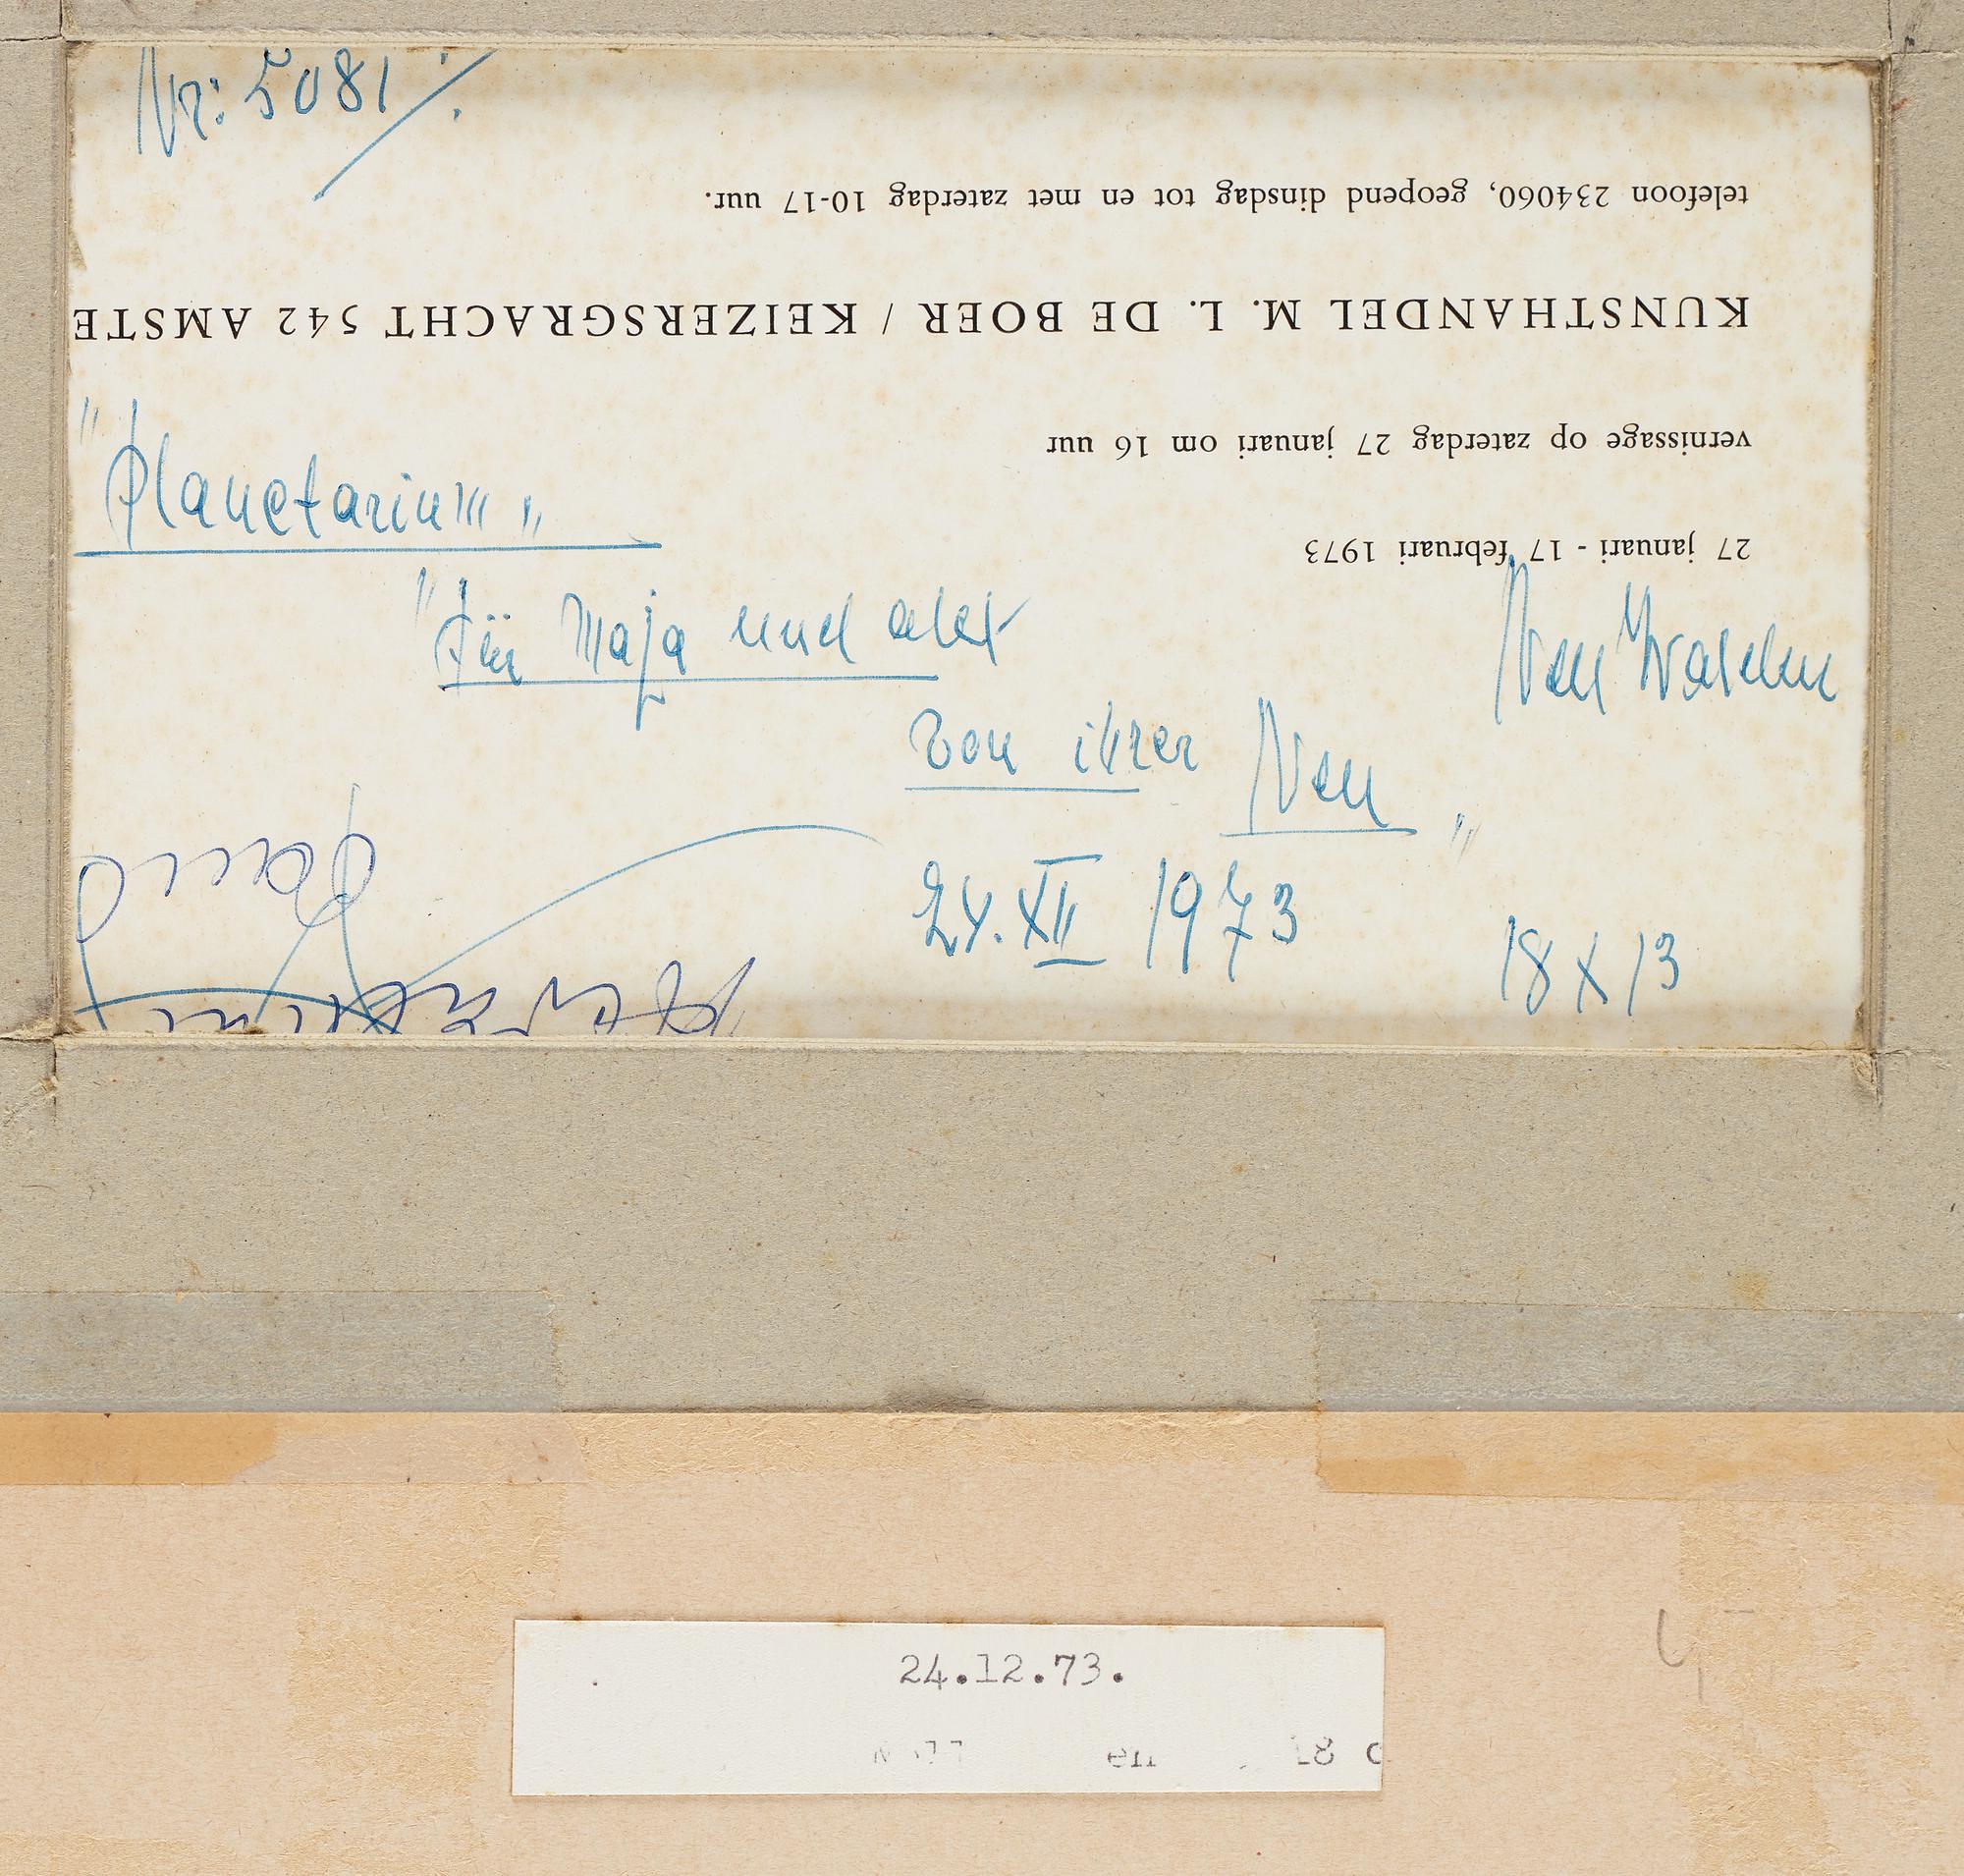 Nr: 5081
telefoon 234060, geopend dinsdag tot en met zaterdag 10-17 uur.
KUNSTHANDEL M. L. DE BOER / KEIZERSGRACHT 542 AMSTE
vernissage op zaterdag 27 januari om 16 uur
"Planetarium"
27 januari - 17 februari 1973
"Für Maja und alex
Nell Walden
von ihrer Nell"
24. XII 1973
18 x 13
24.12.73.